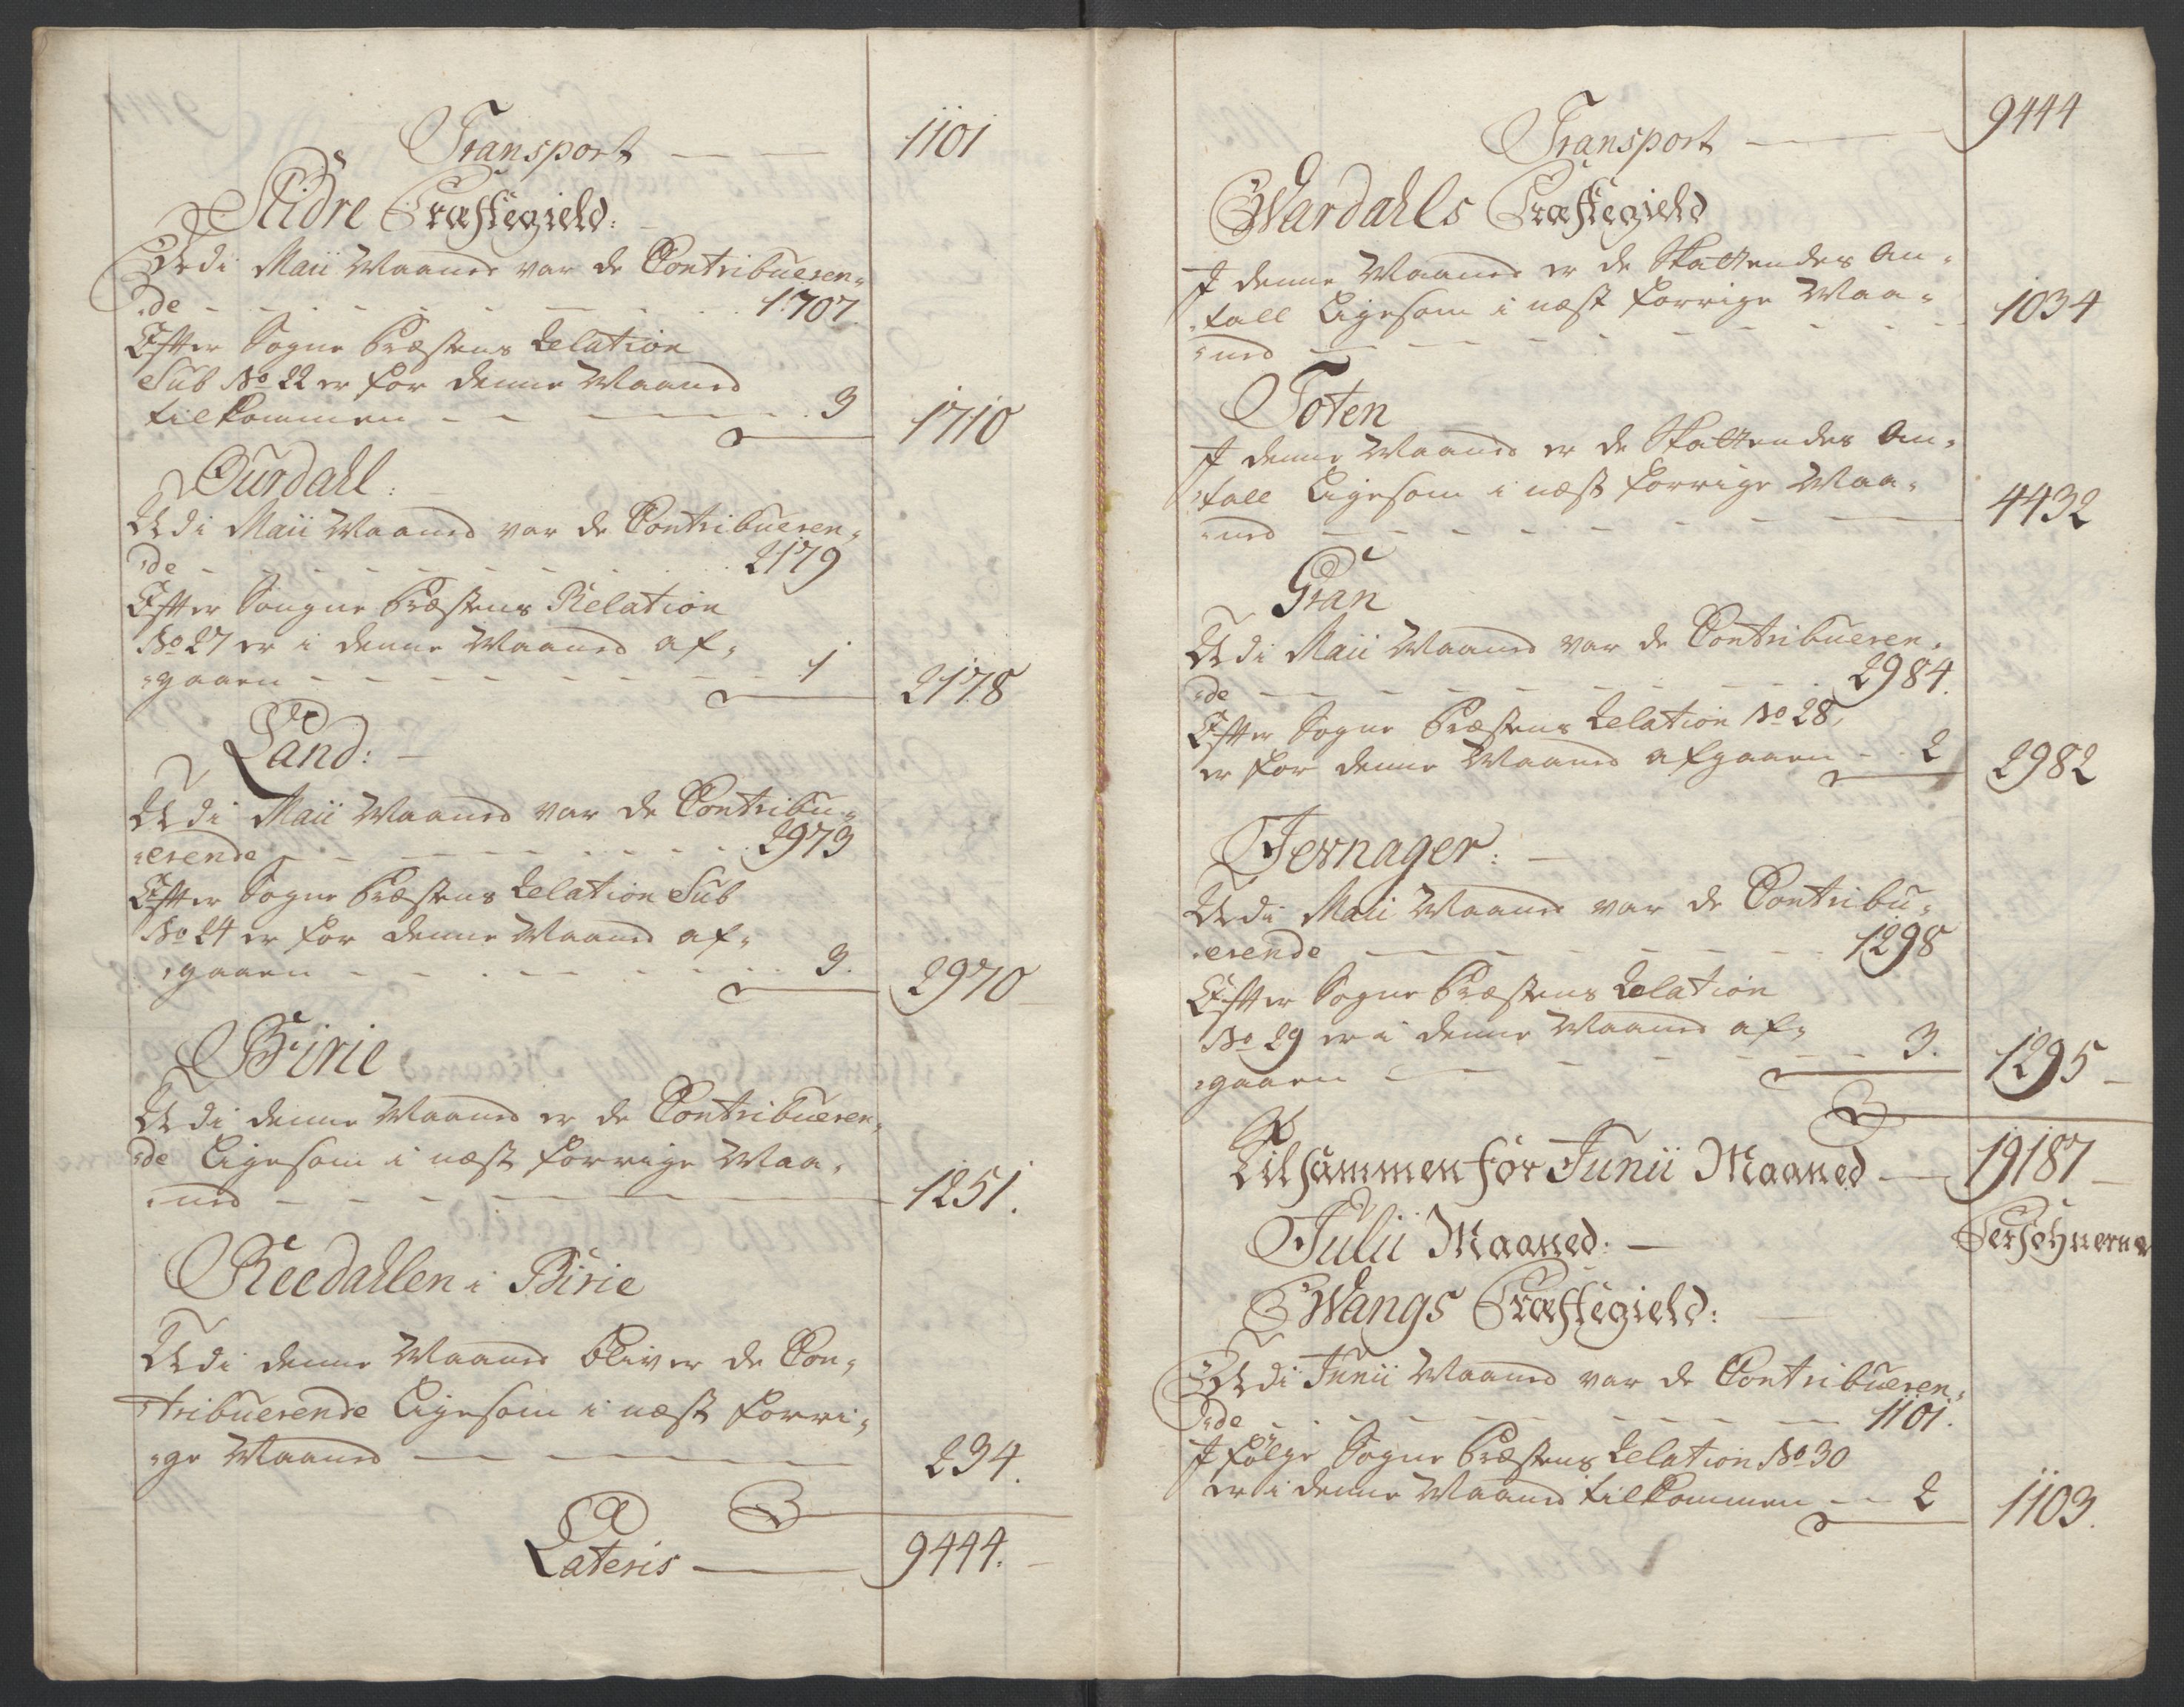 Transport — — 1101
Slidre Præstegield:
Udi Maii Maaned var de Contribueren-
de - - - - - - - 1707.
Efter Sogne Præstens Relation
Sub No 22 er for denne Maaned
tilkommen - - - - - 3 1710
Ourdahl:
Udi Maii Maaned var de Contribueren-
de - - - - - - - 2179
Efter Sougne Præstens Relation
No 27 er i denne Maaned af-
gaaen - - - - - - - 1 2178
Land: -
Udi Maii Maaned var de Contribu-
erende - - - - - - 2973
Efter Sogne Præstens Relation Sub
No 24 er for denne Maaned af-
gaaen - - - - - - - 3. 2970
Birie
Udi denne Maaned er de Contribueren-
de ligesom i næst forrige Maa-
ned - - - - - - - 1251.
Reedahlen i Birie
Udi denne Maaned bliver de Con-
tribuerende ligesom i næst forri-
ge Maaned - - - - - - 234.
Lateris — 9444.
Transport — 9444
Wardahls Præstegield
I denne Maaned er de Skattendes An-
tall ligesom i næst forrige Maa-
ned - - - - - - - 1034
Toten
I denne Maaned er de Skattendes An-
tall ligesom i næst forrige Maa-
ned - - - - - - - 4432
Gran
Udi Maii Maaned var de Contribueren-
de - - - - - - - 2984.
Efter Sogne Præstens Relation No 28,
er for denne Maaned afgaaen - - 2 2982
Jevnager: —
Udi Maii Maaned var de Contribu-
erende - - - - - - 1298
Efter Sogne Præstens Relation
No 29 er i denne Maaned af-
gaaen - - - - - - - 3. 1295 -
Tilsammen for Junii Maaned — 19187 -
Julii Maaned: — Persohnerne
Wangs Præstegield:
Udi Junii Maaned var de Contribueren-
de - - - - - - - 1101.
I følge Sogne Præstens Relation No 30
er i denne Maaned tilkommen - - 2 1103.